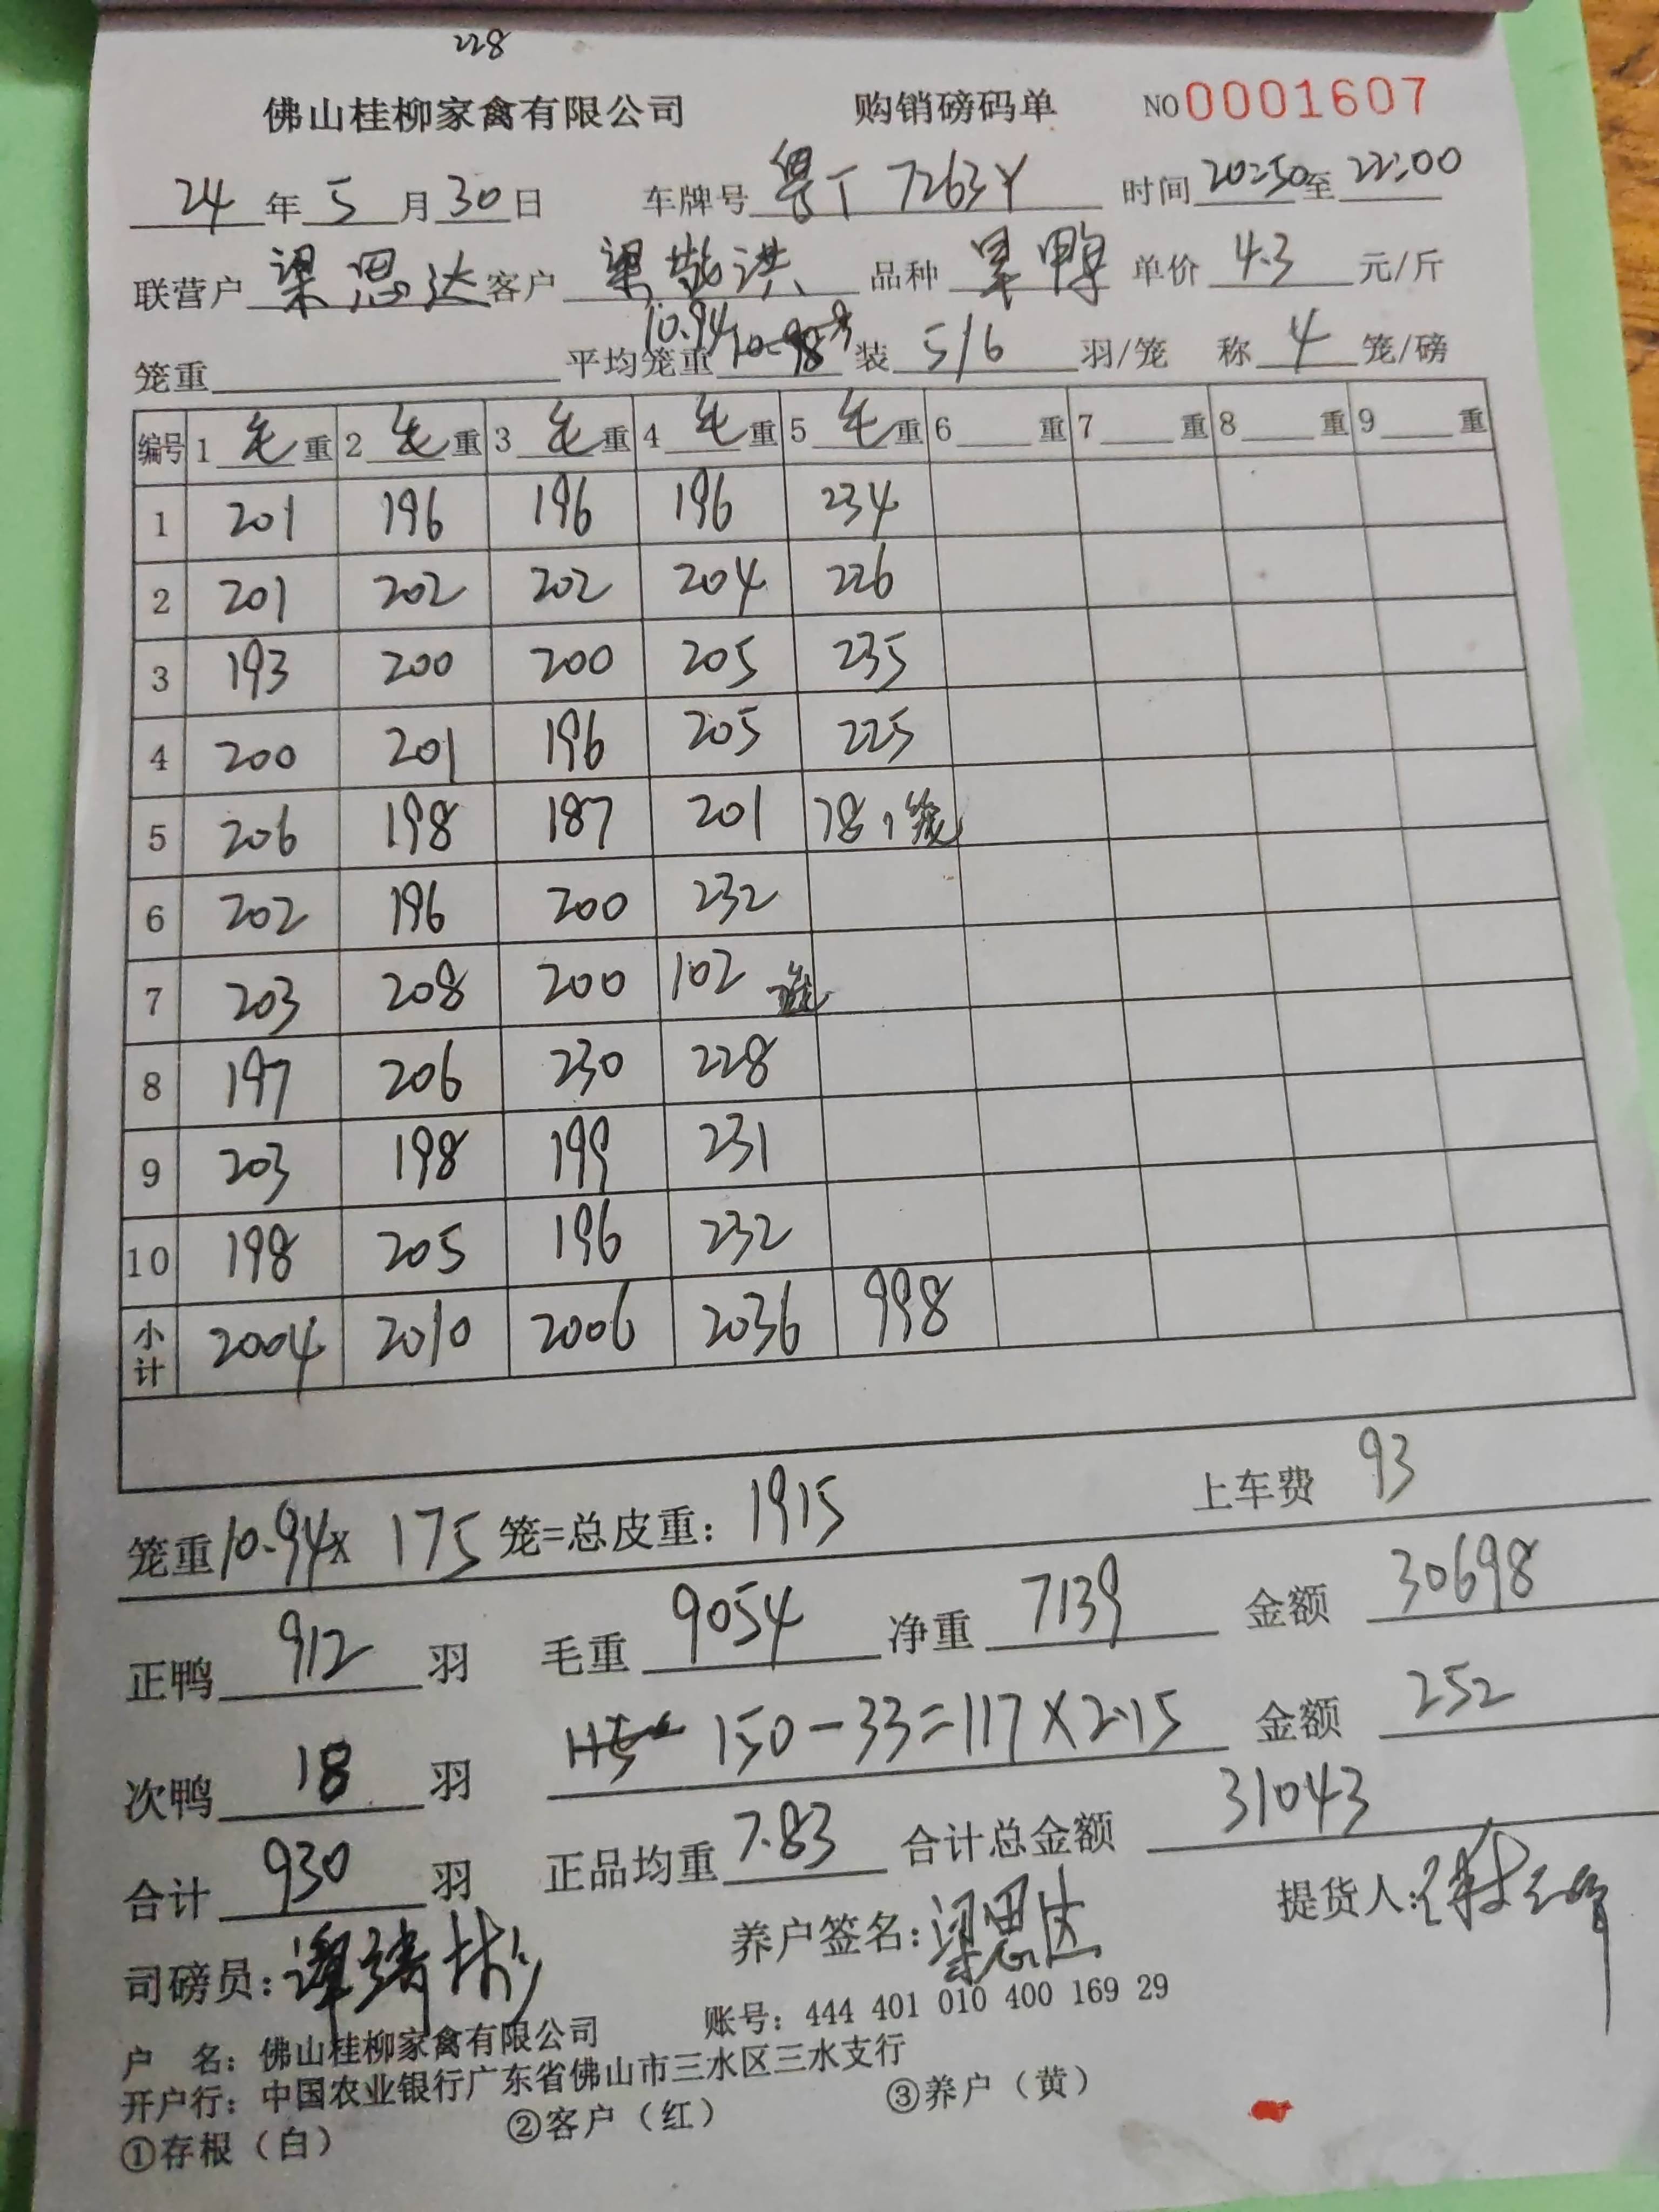 228
佛山桂柳家禽有限公司 购销磅码单 NO 0001607
24 年 5 月 30 日 车牌号 粤J 7263Y 时间 20:50 至 22:00
联营户 梁思达 客户 梁敬洪 品种 旱鸭 单价 4.3 元/斤
笼重 平均笼重 10.94 装 5/6 羽/笼 称 4 笼/磅
编号 1 毛 重 2 毛 重 3 毛 重 4 毛 重 5 毛 重 6 重 7 重 8 重 9 重
1 201 196 196 196 234
2 201 202 202 204 226
3 193 200 200 205 235
4 200 201 196 205 225
5 206 198 187 201 78 1笼
6 202 196 200 232
7 203 208 200 102
8 197 206 230 228
9 203 198 199 231
10 198 205 196 232
小计 2004 2010 2006 2036 998
笼重 10.94 x 175 笼=总皮重: 1915 上车费 93
正鸭 912 羽 毛重 9054 净重 7139 金额 30698
次鸭 18 羽 150-33=117X2.15 金额 252
合计 930 羽 正品均重 7.83 合计总金额 31043
司磅员: 养户签名: 梁思达 提货人:
户 名: 佛山桂柳家禽有限公司 账号: 444 401 010 400 169 29
开户行: 中国农业银行广东省佛山市三水区三水支行
①存根（白） ②客户（红） ③养户（黄）